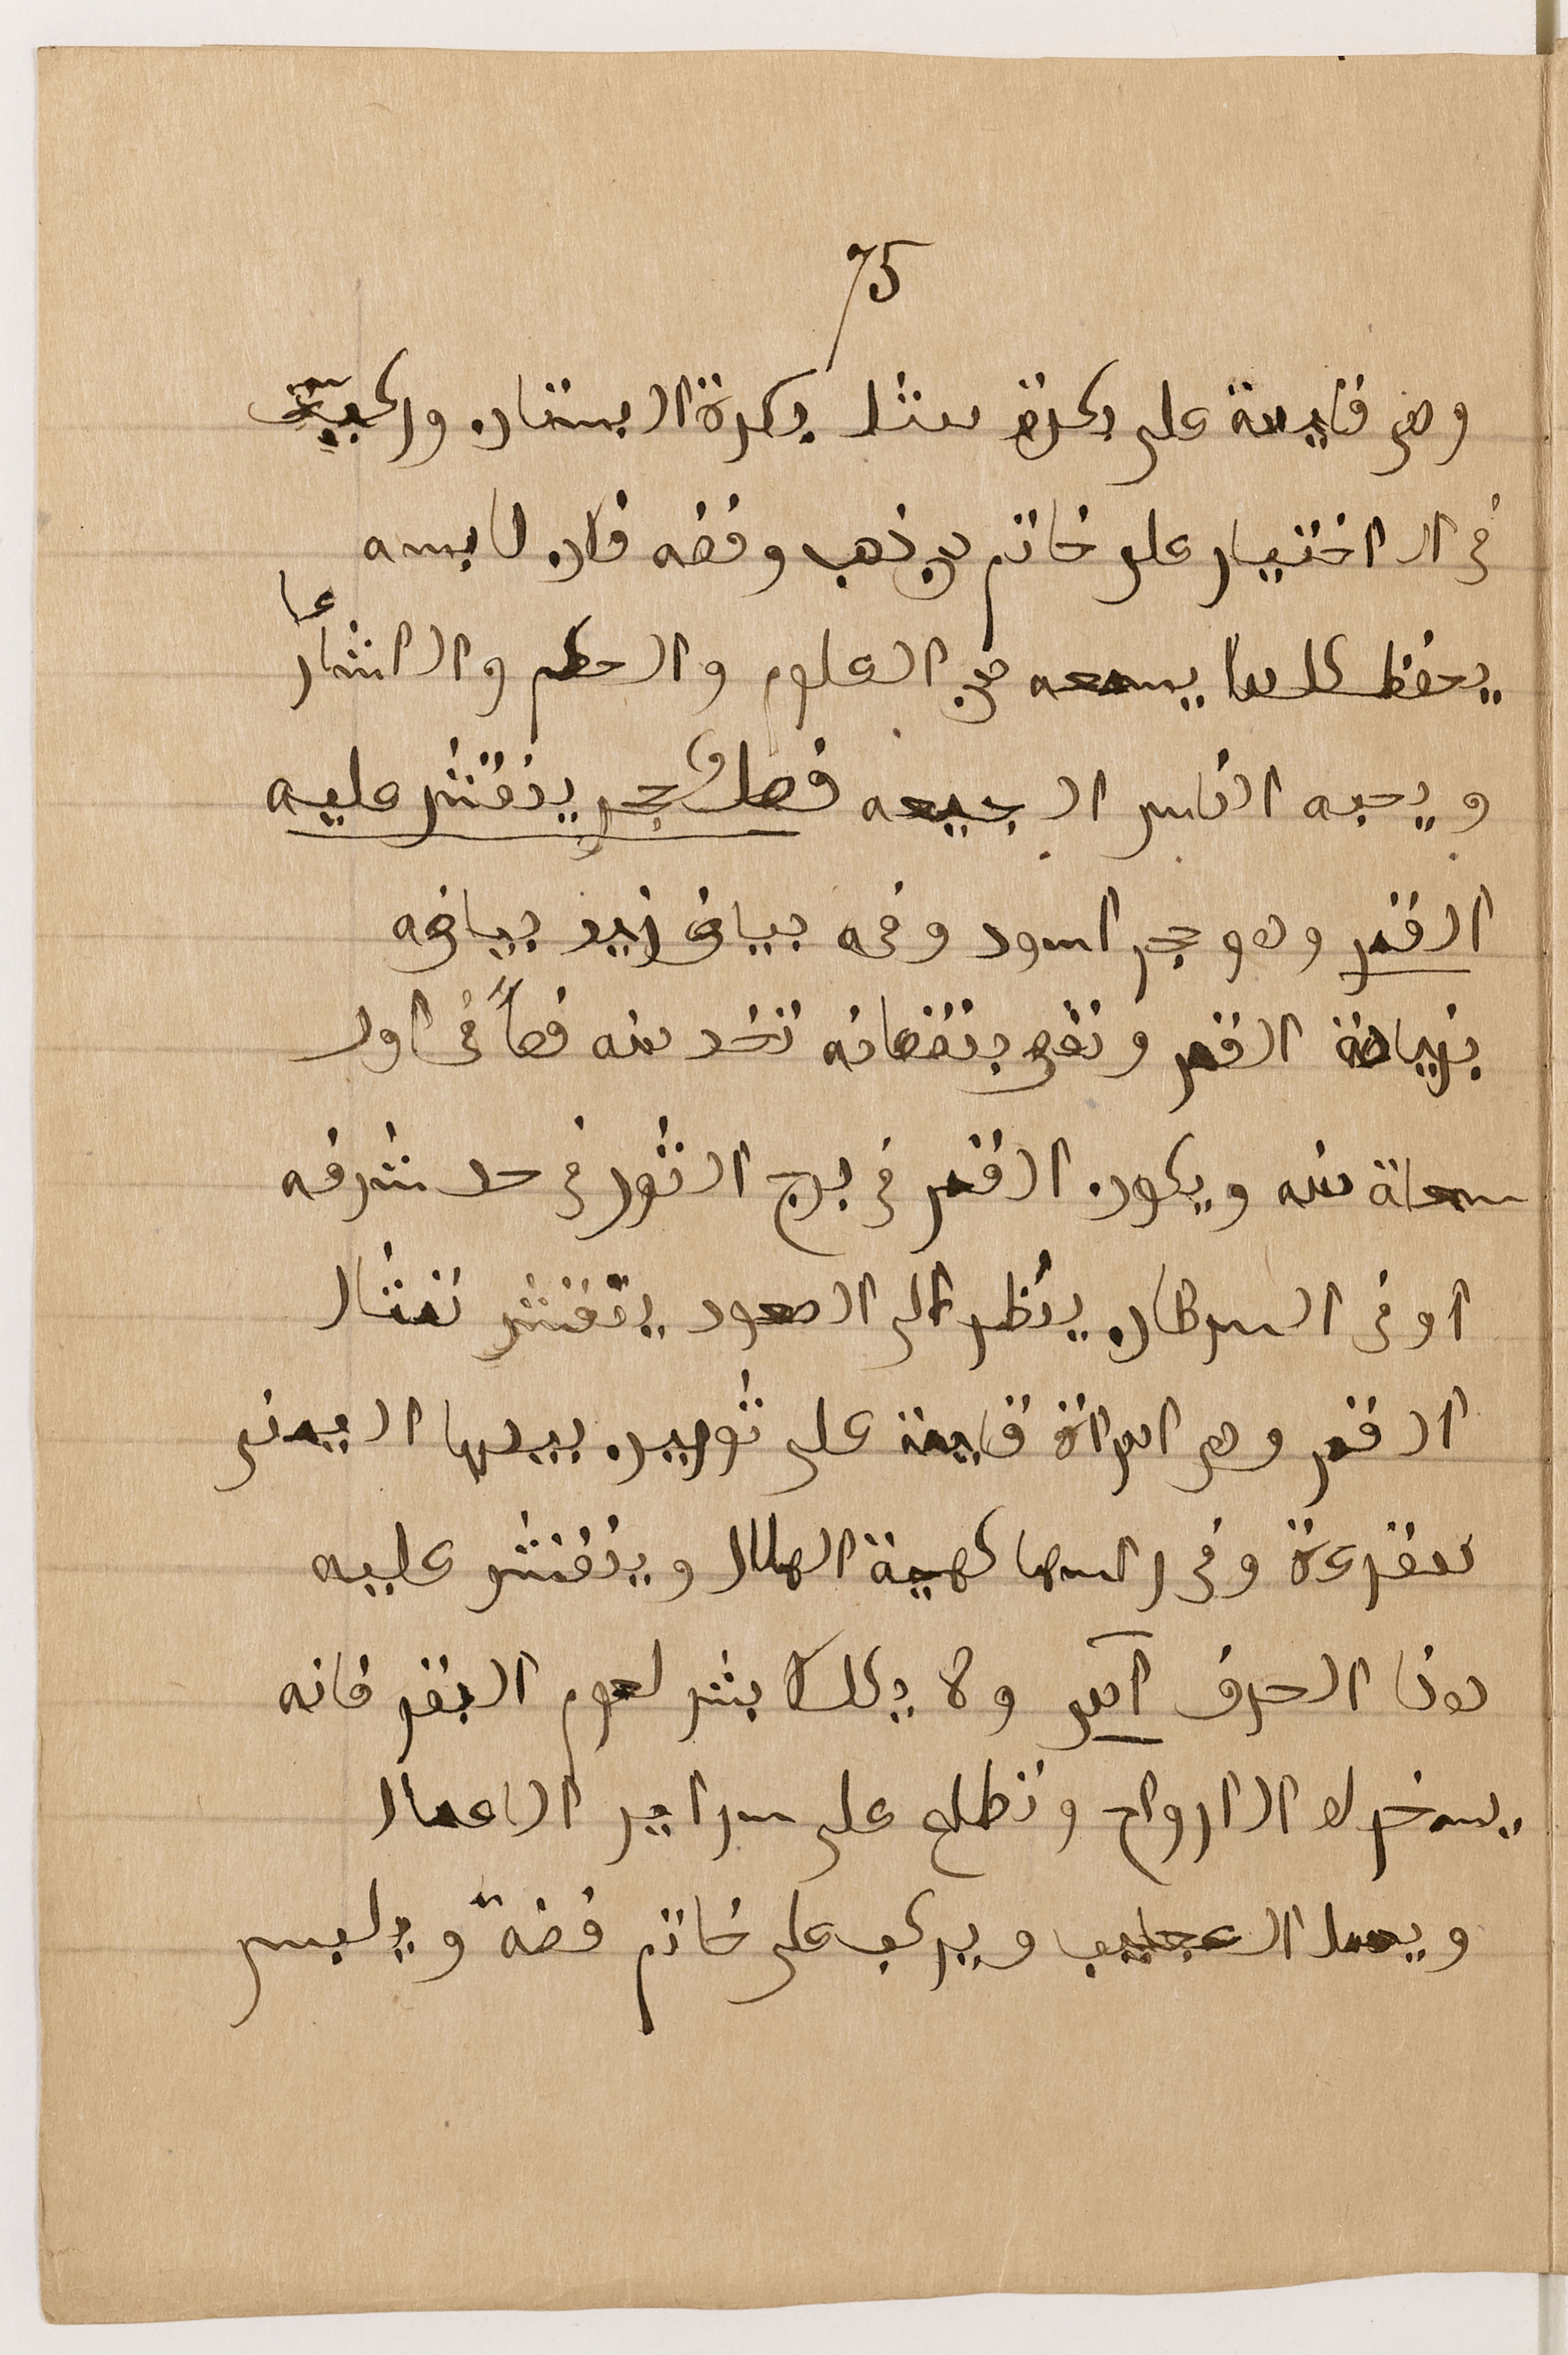 75
وهى قايمة على بكرة مثل بكرة البستان وركبته
فى الاختيار على خاتم من ذهب وفضه فان لابسه
يحفظ كلما يسمعه من العلوم والحكم والاشعار
ويحبه الناس الجميعه فصل وحجر ينقش عليه
القمر وهو حجر اسود وفيه بياض يزيد بياضه
بزيادة القمر ونقص بنقصانه تخد منه فصاً فى اول
ساعة منه ويكون القمر فى برج الثور فى حد شرفه
او فى السرطان ينظر الى السعود ينقش تمثال
القمر وهى امراة قايمة على ثورين بيدها اليمنى
مقرعة وفى راسها كهية الهلال وينقش عليه
هذا الحرف ولا ياكل بشر لحوم البقر فانه
يسخر له الارواح وتطلع على سراير الاعمال
ويعمل العجايب ويركب على خاتم فضة ويلبس